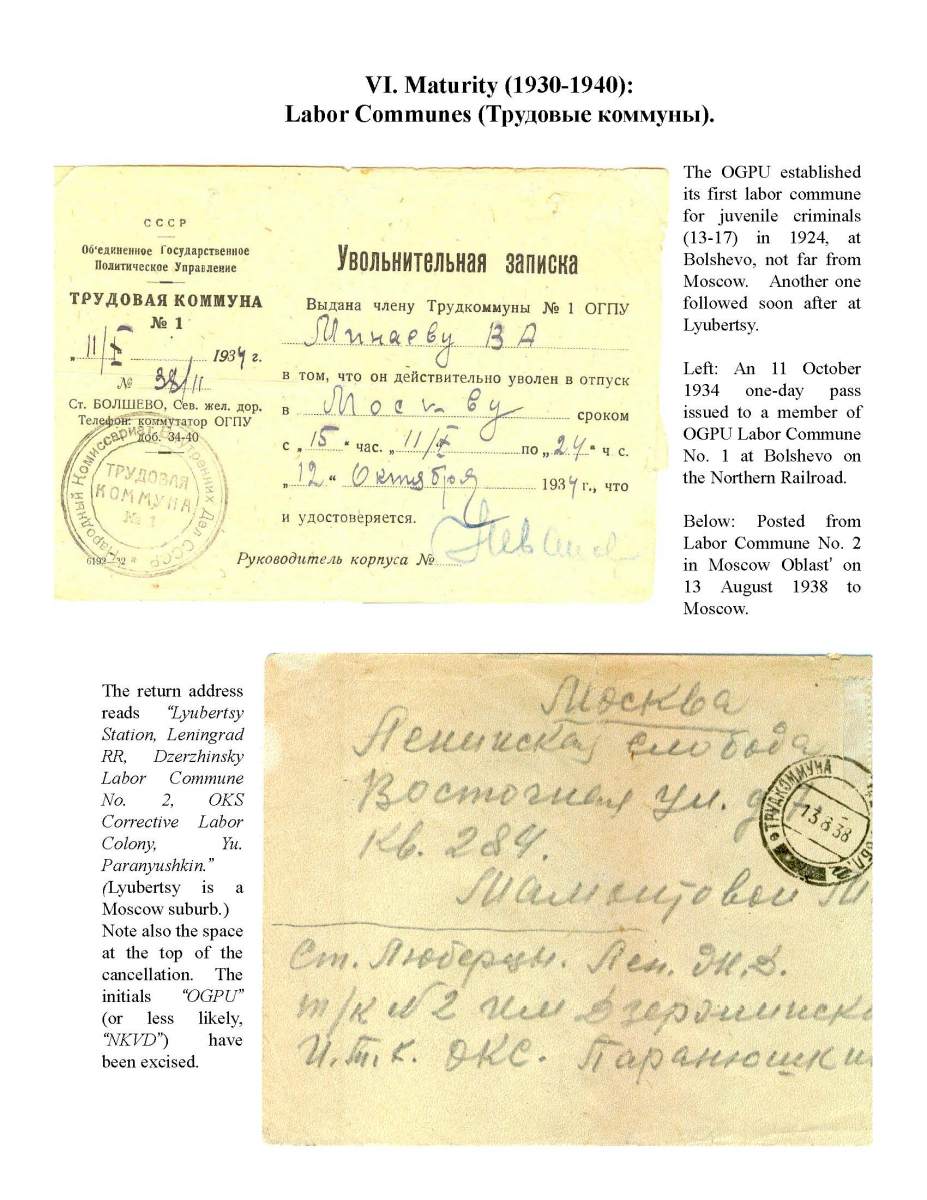 VI. Maturity (1930-1940):
Labor Communes (Трудовые коммуны).
СССР
Об'единенное Государственное
Политическое Управление
ТРУДОВАЯ КОММУНА
№ 1
„11/X 1934 г.
№ 38/11
Ст. БОЛШЕВО, Сев. жел. дор.
Телефон: коммутатор ОГПУ
доб. 34-40
Народный Комиссариат Внутренних Дел СССР
ТРУДОВАЯ
КОММУНА
№ 1
6192—32
Увольнительная записка
Выдана члену Трудкоммуны № 1 ОГПУ
Минаеву В А
в том, что он действительно уволен в отпуск
в Москву сроком
с „15“ час. „11/X по „24“ ч с.
„12“ Октября 1934 г., что
и удостоверяется.
Руководитель корпуса №
The OGPU established
its first labor commune
for juvenile criminals
(13-17) in 1924, at
Bolshevo, not far from
Moscow. Another one
followed soon after at
Lyubertsy.
Left: An 11 October
1934 one-day pass
issued to a member of
OGPU Labor Commune
No. 1 at Bolshevo on
the Northern Railroad.
Below: Posted from
Labor Commune No. 2
in Moscow Oblast' on
13 August 1938 to
Moscow.
The return address
reads “Lyubertsy
Station, Leningrad
RR, Dzerzhinsky
Labor Commune
No. 2, OKS
Corrective Labor
Colony, Yu.
Paranyushkin.”
(Lyubertsy is a
Moscow suburb.)
Note also the space
at the top of the
cancellation. The
initials “OGPU”
(or less likely,
“NKVD”) have
been excised.
Москва
Ленинская слобода
Восточная ул. д 7
Кв. 284.
Мамонтовой М
ТРУДКОММУНА
13 8 38
Ст. Люберцы. Лен. Ж.Д.
т/к №2 им Дзержинско
И.Т.К. ОКС. Паранюшки